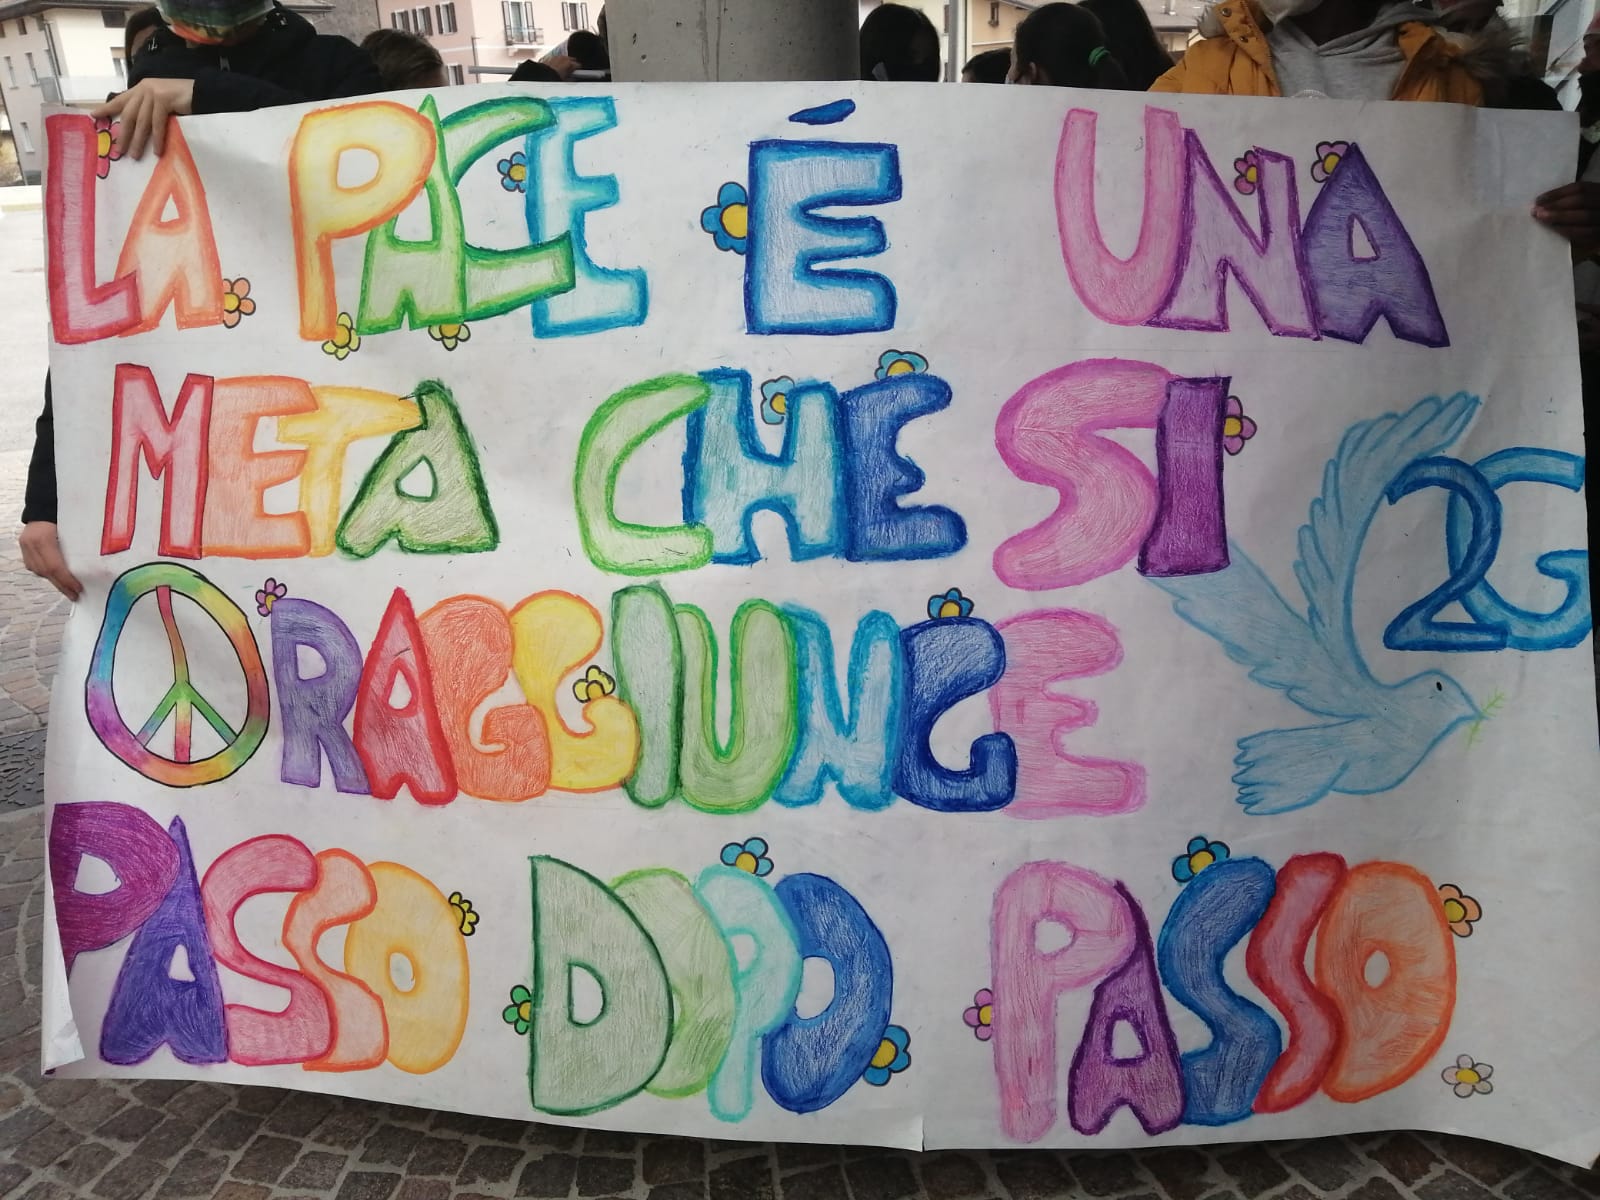 LA PACE É UNA
META CHE SI
RAGGIUNGE
2G
PASSO DOPO PASSO